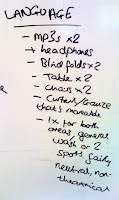 LANGUAGE
- mp3s x2
+ headphones
- Blindfolds x2
- Table x2
- Chairs x2
- Curtain/Gauze
that's movable
- 1x for both
areas, general
wash or 2
spots, fairly
neutral, non-
theatrical